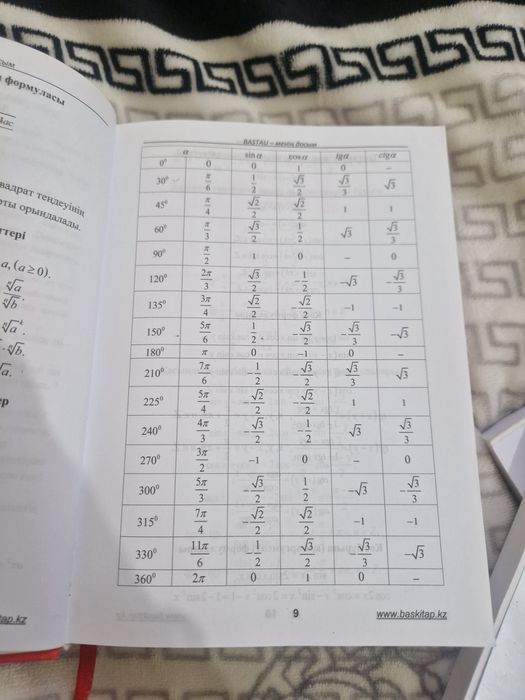 сым
формуласы
4ac
вадрат теңдеуінің
рты орындалады.
ттері
a, (a ≥ 0).
ер
tap.kz
BASTAU – менің досым
α sin α cos α tgα ctgα
0⁰ 0 0 1 0 –
30⁰ π/6 1/2 √3/2 √3/3 √3
45⁰ π/4 √2/2 √2/2 1 1
60⁰ π/3 √3/2 1/2 √3 √3/3
90⁰ π/2 1 0 – 0
120⁰ 2π/3 √3/2 -1/2 -√3 -√3/3
135⁰ 3π/4 √2/2 -√2/2 -1 -1
150⁰ 5π/6 1/2 -√3/2 -√3/3 -√3
180⁰ π 0 -1 0 –
210⁰ 7π/6 -1/2 -√3/2 √3/3 √3
225⁰ 5π/4 -√2/2 -√2/2 1 1
240⁰ 4π/3 -√3/2 -1/2 √3 √3/3
270⁰ 3π/2 -1 0 – 0
300⁰ 5π/3 -√3/2 1/2 -√3 -√3/3
315⁰ 7π/4 -√2/2 √2/2 -1 -1
330⁰ 11π/6 -1/2 √3/2 -√3/3 -√3
360⁰ 2π 0 1 0 –
9 www.baskitap.kz